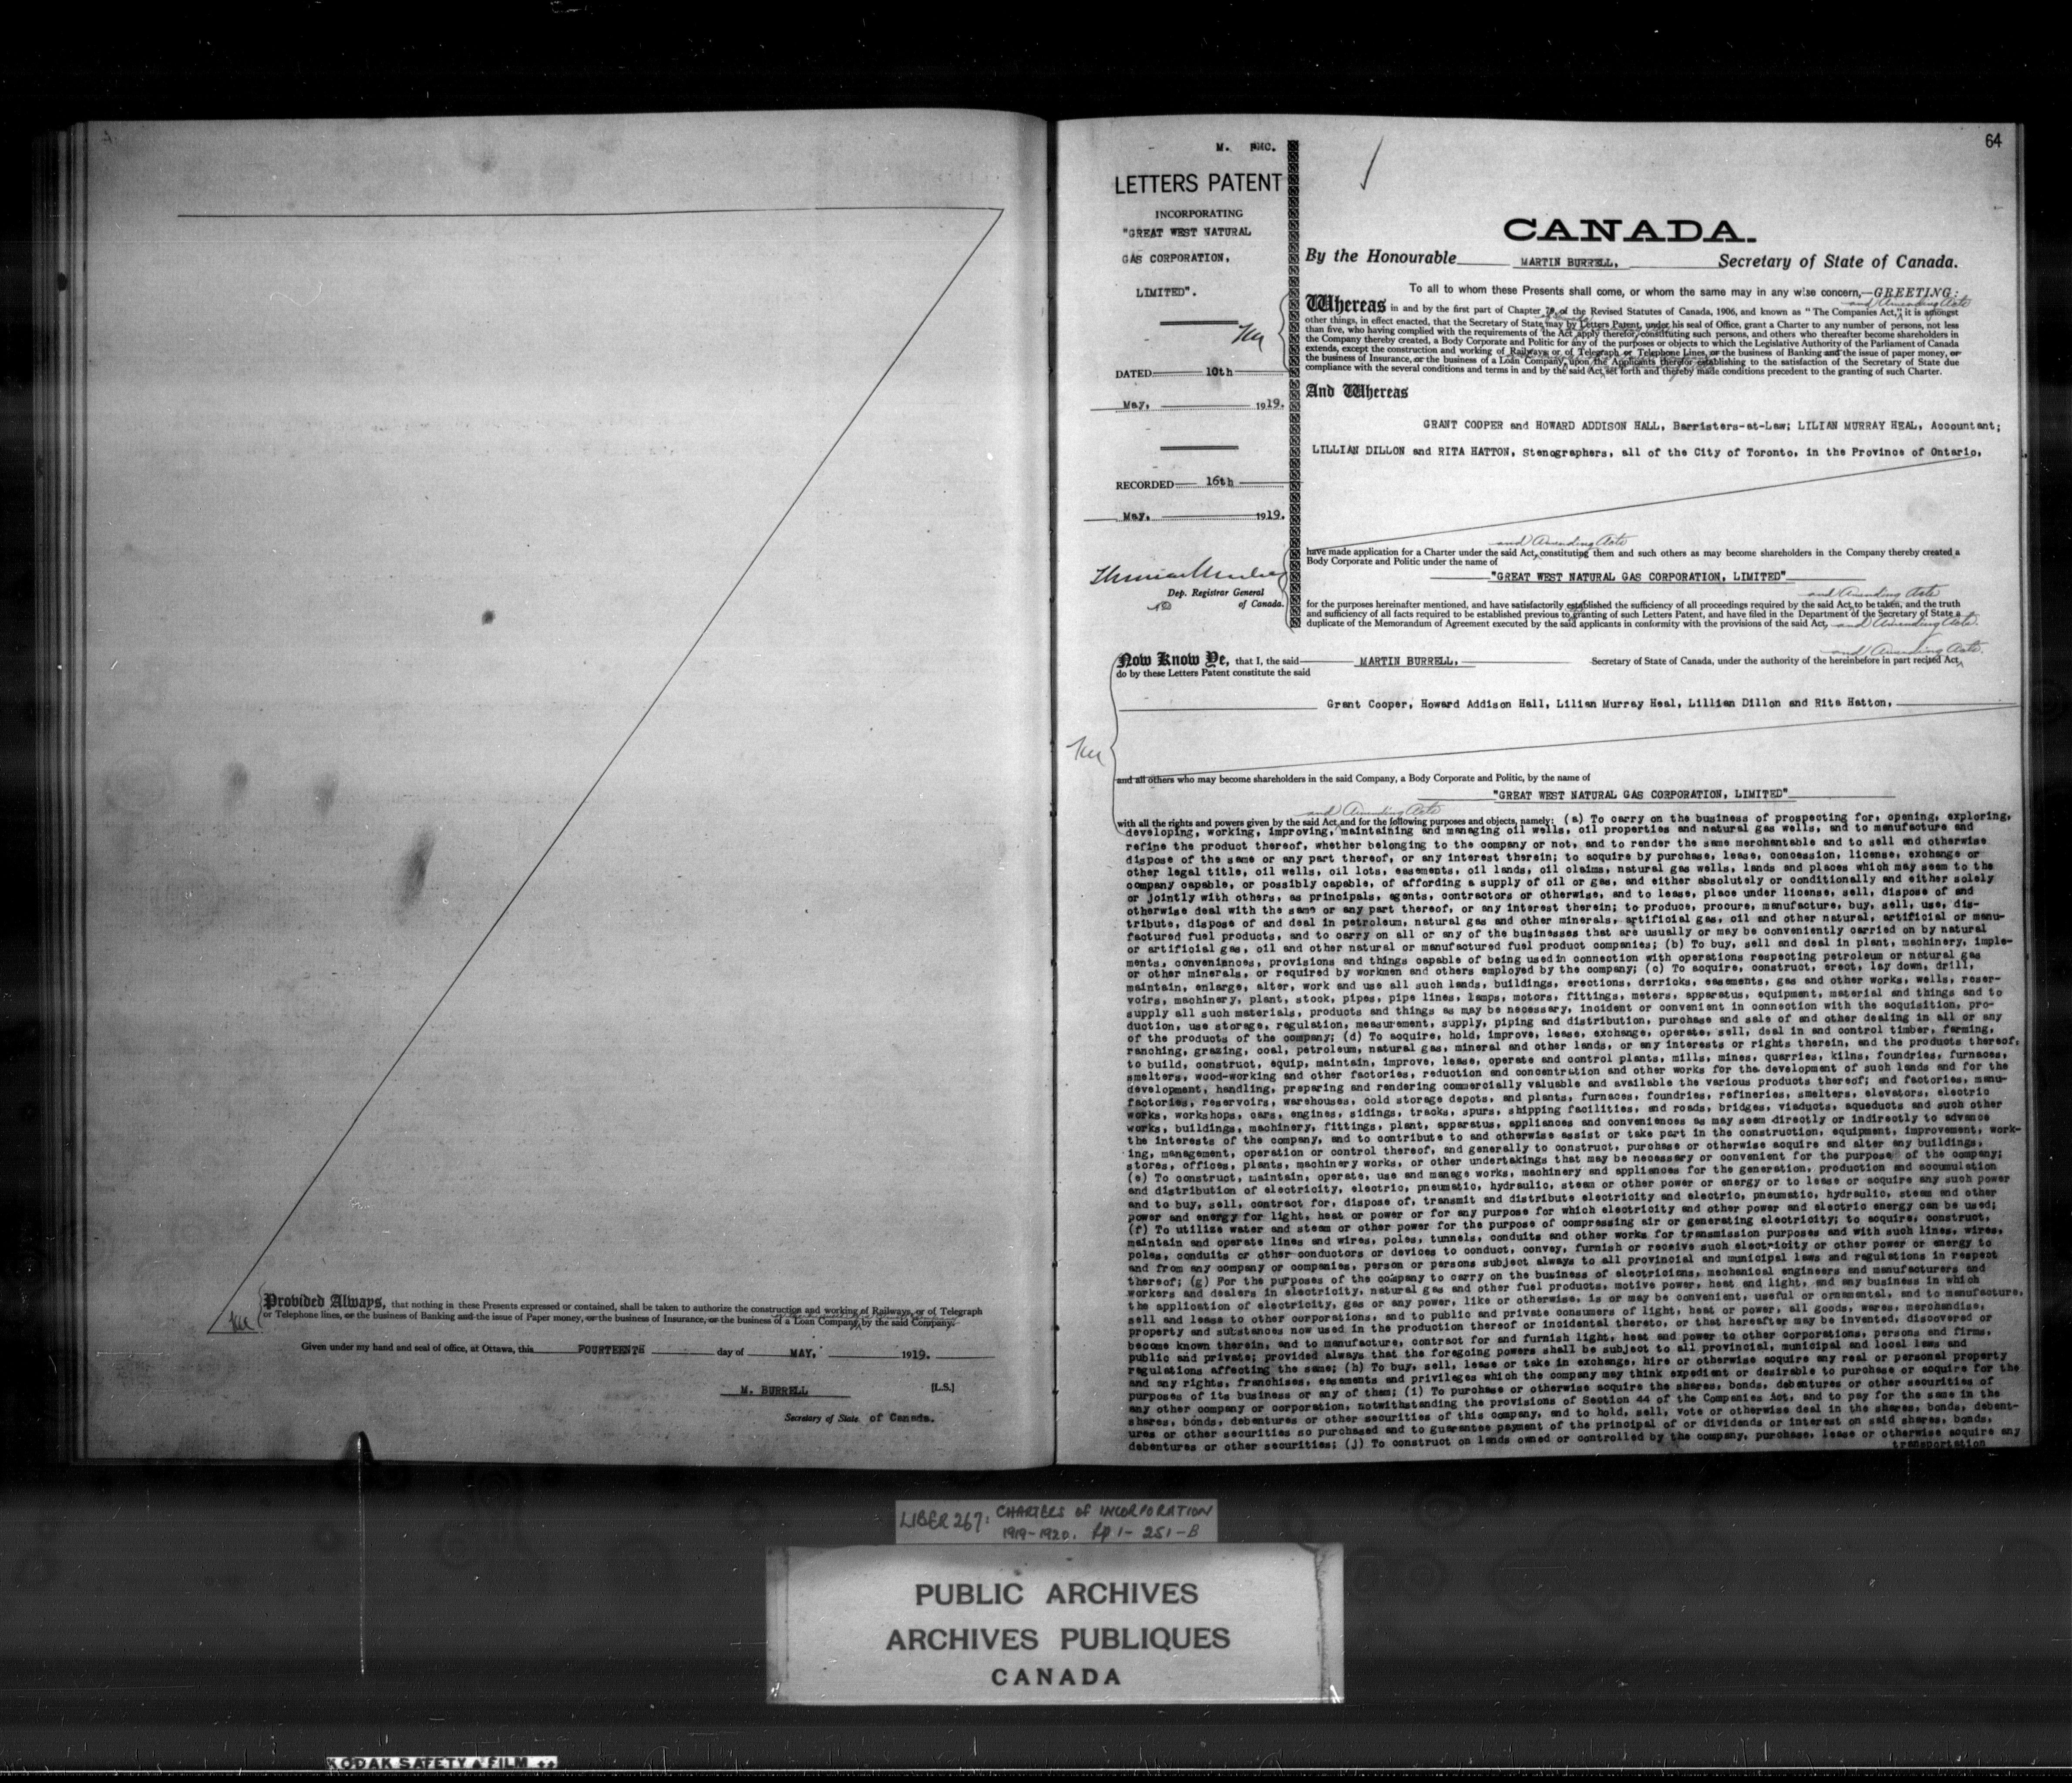 Provided Always, that nothing in these Presents expressed or contained, shall be taken to authorize the construction and working of Railways, or of Telegraph
or Telephone lines, or the business of Banking and the issue of Paper money, or the business of Insurance, or the business of a Loan Company, by the said Company.
Given under my hand and seal of office, at Ottawa, this FOURTEENTH day of MAY, 1919.
M. BURRELL [L.S.]
Secretary of State of Canada.
64
M. PMC.
LETTERS PATENT
INCORPORATING
"GREAT WEST NATURAL
GAS CORPORATION,
LIMITED".
DATED 10th
May, 1919.
RECORDED 16th
May, 1919.
Dep. Registrar General
of Canada.
CANADA.
By the Honourable MARTIN BURRELL, Secretary of State of Canada.
To all to whom these Presents shall come, or whom the same may in any wise concern,—GREETING:
and Amending Acts
Whereas in and by the first part of Chapter 79, of the Revised Statutes of Canada, 1906, and known as "The Companies Act," it is amongst
other things, in effect enacted, that the Secretary of State may by Letters Patent, under his seal of Office, grant a Charter to any number of persons, not less
than five, who having complied with the requirements of the Act apply therefor, constituting such persons, and others who thereafter become shareholders in
the Company thereby created, a Body Corporate and Politic for any of the purposes or objects to which the Legislative Authority of the Parliament of Canada
extends, except the construction and working of Railways or of Telegraph or Telephone Lines, or the business of Banking and the issue of paper money, or
the business of Insurance, or the business of a Loan Company, upon the Applicants therefor establishing to the satisfaction of the Secretary of State due
compliance with the several conditions and terms in and by the said Act, set forth and thereby made conditions precedent to the granting of such Charter.
And Whereas
GRANT COOPER and HOWARD ADDISON HALL, Barristers-at-Law; LILIAN MURRAY HEAL, Accountant;
LILLIAN DILLON and RITA HATTON, Stenographers, all of the City of Toronto, in the Province of Ontario,
and Amending Acts
have made application for a Charter under the said Act, constituting them and such others as may become shareholders in the Company thereby created a
Body Corporate and Politic under the name of
"GREAT WEST NATURAL GAS CORPORATION, LIMITED"
and Amending Acts
for the purposes hereinafter mentioned, and have satisfactorily established the sufficiency of all proceedings required by the said Act to be taken, and the truth
and sufficiency of all facts required to be established previous to granting of such Letters Patent, and have filed in the Department of the Secretary of State a
duplicate of the Memorandum of Agreement executed by the said applicants in conformity with the provisions of the said Act, and Amending Acts.
and Amending Acts.
Now Know Ye, that I, the said MARTIN BURRELL, Secretary of State of Canada, under the authority of the hereinbefore in part recited Act,
do by these Letters Patent constitute the said
Grant Cooper, Howard Addison Hall, Lilian Murray Heal, Lillian Dillon and Rita Hatton,
and all others who may become shareholders in the said Company, a Body Corporate and Politic, by the name of
"GREAT WEST NATURAL GAS CORPORATION, LIMITED"
and Amending Acts
with all the rights and powers given by the said Act, and for the following purposes and objects, namely: (a) To carry on the business of prospecting for, opening, exploring,
developing, working, improving, maintaining and managing oil wells, oil properties and natural gas wells, and to manufacture and
refine the product thereof, whether belonging to the company or not, and to render the same merchantable and to sell and otherwise
dispose of the same or any part thereof, or any interest therein; to acquire by purchase, lease, concession, license, exchange or
other legal title, oil wells, oil lots, easements, oil lands, oil claims, natural gas wells, lands and places which may seem to the
company capable, or possibly capable, of affording a supply of oil or gas, and either absolutely or conditionally and either solely
or jointly with others, as principals, agents, contractors or otherwise, and to lease, place under license, sell, dispose of and
otherwise deal with the same or any part thereof, or any interest therein; to produce, procure, manufacture, buy, sell, use, dis-
tribute, dispose of and deal in petroleum, natural gas and other minerals, artificial gas, oil and other natural, artificial or manu-
factured fuel products, and to carry on all or any of the businesses that are usually or may be conveniently carried on by natural
or artificial gas, oil and other natural or manufactured fuel product companies; (b) To buy, sell and deal in plant, machinery, imple-
ments, conveniences, provisions and things capable of being used in connection with operations respecting petroleum or natural gas
or other minerals, or required by workmen and others employed by the company; (c) To acquire, construct, erect, lay down, drill,
maintain, enlarge, alter, work and use all such lands, buildings, erections, derricks, easements, gas and other works, wells, reser-
voirs, machinery, plant, stock, pipes, pipe lines, lamps, motors, fittings, meters, apparatus, equipment, material and things and to
supply all such materials, products and things as may be necessary, incident or convenient in connection with the acquisition, pro-
duction, use storage, regulation, measurement, supply, piping and distribution, purchase and sale of and other dealing in all or any
of the products of the company; (d) To acquire, hold, improve, lease, exchange, operate, sell, deal in and control timber, farming,
ranching, grazing, coal, petroleum, natural gas, mineral and other lands, or any interests or rights therein, and the products thereof,
to build, construct, equip, maintain, improve, lease, operate and control plants, mills, mines, quarries, kilns, foundries, furnaces,
smelters, wood-working and other factories, reduction and concentration and other works for the development of such lands and for the
development, handling, preparing and rendering commercially valuable and available the various products thereof; and factories, manu-
factories, reservoirs, warehouses, cold storage depots, and plants, furnaces, foundries, refineries, smelters, elevators, electric
works, workshops, cars, engines, sidings, tracks, spurs, shipping facilities, and roads, bridges, viaducts, aqueducts and such other
works, buildings, machinery, fittings, plant, apparatus, appliances and conveniences as may seem directly or indirectly to advance
the interests of the company, and to contribute to and otherwise assist or take part in the construction, equipment, improvement, work-
ing, management, operation or control thereof, and generally to construct, purchase or otherwise acquire and alter any buildings,
stores, offices, plants, machinery works, or other undertakings that may be necessary or convenient for the purpose of the company;
(e) To construct, maintain, operate, use and manage works, machinery and appliances for the generation, production and accumulation
and distribution of electricity, electric, pneumatic, hydraulic, steam or other power or energy or to lease or acquire any such power
and to buy, sell, contract for, dispose of, transmit and distribute electricity and electric, pneumatic, hydraulic, steam and other
power and energy for light, heat or power or for any purpose for which electricity and other power and electric energy can be used;
(f) To utilize water and steam or other power for the purpose of compressing air or generating electricity; to acquire, construct,
maintain and operate lines and wires, poles, tunnels, conduits and other works for transmission purposes and with such lines, wires,
poles, conduits or other conductors or devices to conduct, convey, furnish or receive such electricity or other power or energy to
and from any company or companies, person or persons subject always to all provincial and municipal laws and regulations in respect
thereof; (g) For the purposes of the company to carry on the business of electricians, mechanical engineers and manufacturers and
workers and dealers in electricity, natural gas and other fuel products, motive power, heat and light, and any business in which
the application of electricity, gas or any power, like or otherwise, is or may be convenient, useful or ornamental, and to manufacture,
sell and lease to other corporations, and to public and private consumers of light, heat or power, all goods, wares, merchandise,
property and substances now used in the production thereof or incidental thereto, or that hereafter may be invented, discovered or
become known therein, and to manufacture, contract for and furnish light, heat and power to other corporations, persons and firms,
public and private; provided always that the foregoing powers shall be subject to all provincial, municipal and local laws and
regulations affecting the same; (h) To buy, sell, lease or take in exchange, hire or otherwise acquire any real or personal property
and any rights, franchises, easements and privileges which the company may think expedient or desirable to purchase or acquire for the
purposes of its business or any of them; (i) To purchase or otherwise acquire the shares, bonds, debentures or other securities of
any other company or corporation, notwithstanding the provisions of Section 44 of the Companies Act, and to pay for the same in the
shares, bonds, debentures or other securities of this company, and to hold, sell, vote or otherwise deal in the shares, bonds, debent-
ures or other securities so purchased and to guarantee payment of the principal of or dividends or interest on said shares, bonds,
debentures or other securities; (j) To construct on lands owned or controlled by the company, purchase, lease or otherwise acquire any
transportation
LIBER 267: CHARTERS OF INCORPORATION
1919-1920. pp 1-251-B
PUBLIC ARCHIVES
ARCHIVES PUBLIQUES
CANADA
KODAK SAFETY FILM